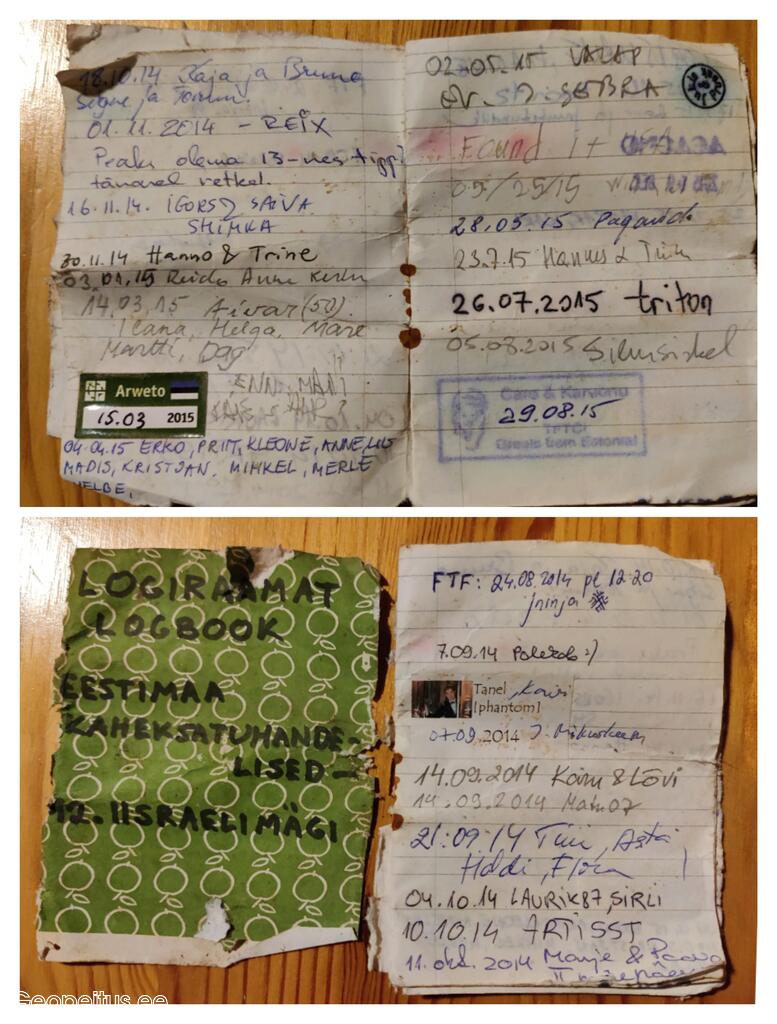 18.10.14 Kaja ja Bruno
Signe ja Toomas.
01.11.2014 - REIX
Peaks olema 13-nes tipp?
tänasel retkel.
16.11.14. IGORS2 SAIVA
SHIMKA
30.11.14 Hanno & Triine
03.01.15 Reido Anne
14.03.15 Aivar (50).
Ilana, Helga, Mare
Martti, Dag
Arweto
15.03 2015
04.04.15 ERKO, PRIIT, KLEONE, ANNE, LIIS
MADIS, KRISTJAN, MIHKEL, MERLE
HELBE,
02.05.15 VALAP
GEBRA
Found It
05/25/15
28.05.15 Paganid
23.7.15 Hannes & Tiin
26.07.2015 triton
05.08.2015 Silmusiskel
29.08.15
TFTC!
Greets from Estonia!
LOGIRAAMAT
LOGBOOK
EESTIMAA
KAHEKSATUHANDE-
LISED -
12. IISRAELIMÄGI
FTF: 24.08.2014 pl 12:20
jninja
7.09.14
Tanel
[phantom]
07.09.2014
14.09.2014 Käru & Lõvi
14.09.2014 Matu07
21.09.14 Tiiu, Asta
Heldi, Elora
04.10.14 LAURIK87, SIRLI
10.10.14 ARTISST
11. okt. 2014 Marje & Paavo
Geopeitus.ee